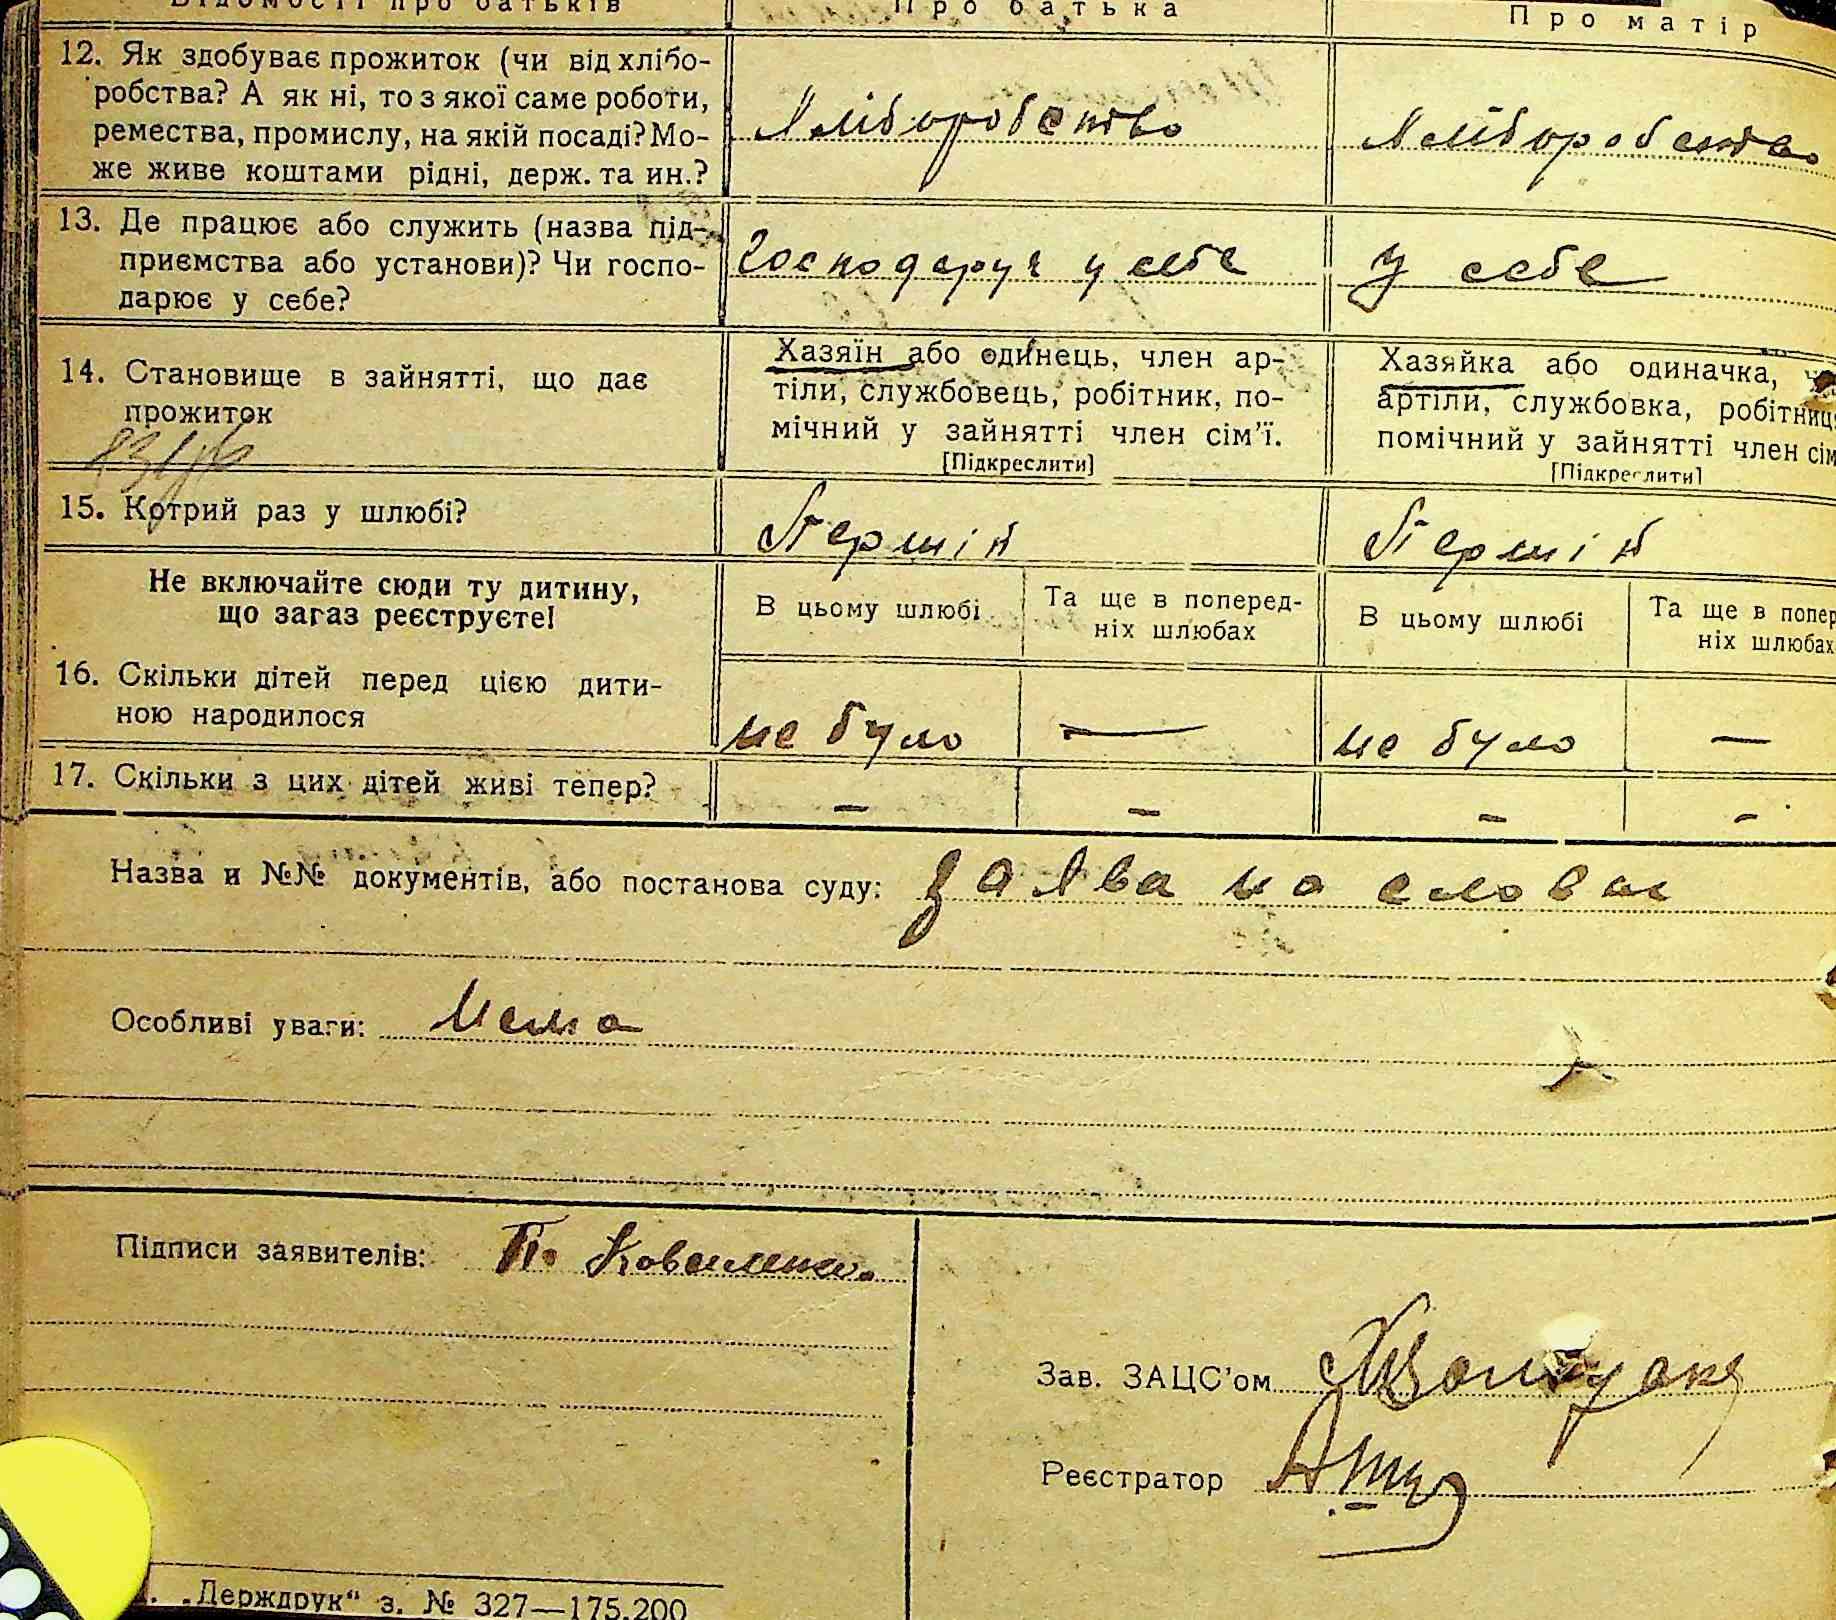 Відомості про батьків Про батька Про матір
12. Як здобуває прожиток (чи від хлібо-
робства? А як ні, то з якої саме роботи,
ремества, промислу, на якій посаді? Мо-
же живе коштами рідні, держ. та ин.?
Хліборобство Хліборобство
13. Де працює або служить (назва під-
приємства або установи)? Чи госпо-
дарює у себе?
Господарує у себе У себе
14. Становище в зайнятті, що дає
прожиток
Хазяїн або одинець, член ар-
тіли, службовець, робітник, по-
мічний у зайнятті член сім'ї.
[Підкреслити]
Хазяйка або одиначка,
артіли, службовка, робітниц
помічний у зайнятті член сім
[Підкреслити]
15. Котрий раз у шлюбі?
Першій Першій
Не включайте сюди ту дитину,
що загаз реєструєте!
В цьому шлюбі Та ще в поперед-
ніх шлюбах
В цьому шлюбі Та ще в попер
ніх шлюбах
16. Скільки дітей перед цією дити-
ною народилося
не було — не було —
17. Скільки з цих дітей живі тепер?
– – – –
Назва и №№ документів, або постанова суду: заява на словах
Особливі уваги: Нема
Підписи заявителів: П. Коваленко.
Зав. ЗАЦС'ом
Реєстратор
„Держдрук“ з. № 327—175.200